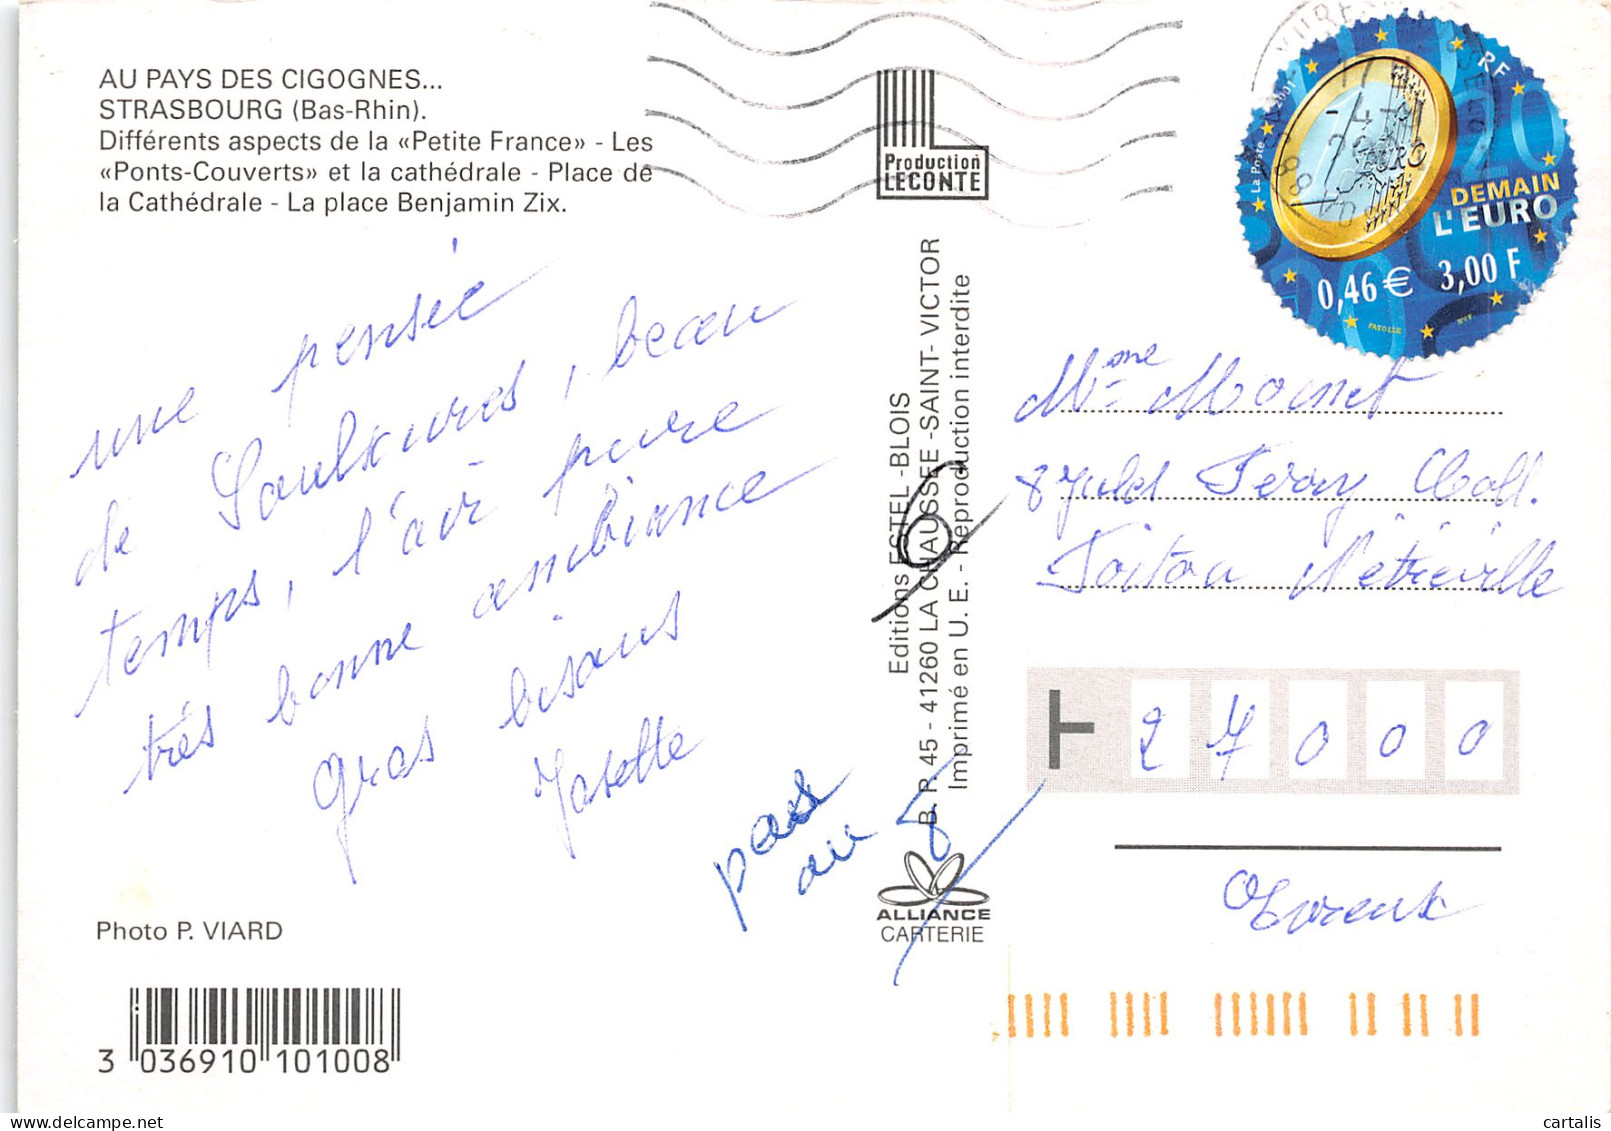 AU PAYS DES CIGOGNES...
STRASBOURG (Bas-Rhin).
Différents aspects de la «Petite France» - Les
«Ponts-Couverts» et la cathédrale - Place de
la Cathédrale - La place Benjamin Zix.
Production
LECONTE
RF
La Poste 2001
20
DEMAIN
L'EURO
0,46 € 3,00 F
EURO
une pensée
de Saulxures, beau
temps, l'air pure
très bonne ambiance
gros bisous
Josette
pas
au 8
6
Editions ESTEL - BLOIS
B. P. 45 - 41260 LA CHAUSSEE - SAINT- VICTOR
Imprimé en U. E. - Reproduction interdite
ALLIANCE
CARTERIE
Mme
8 Jules Ferry
Nétreville
27000
Evreux
Photo P. VIARD
3 036910 101008
cartalis
www.delcampe.net